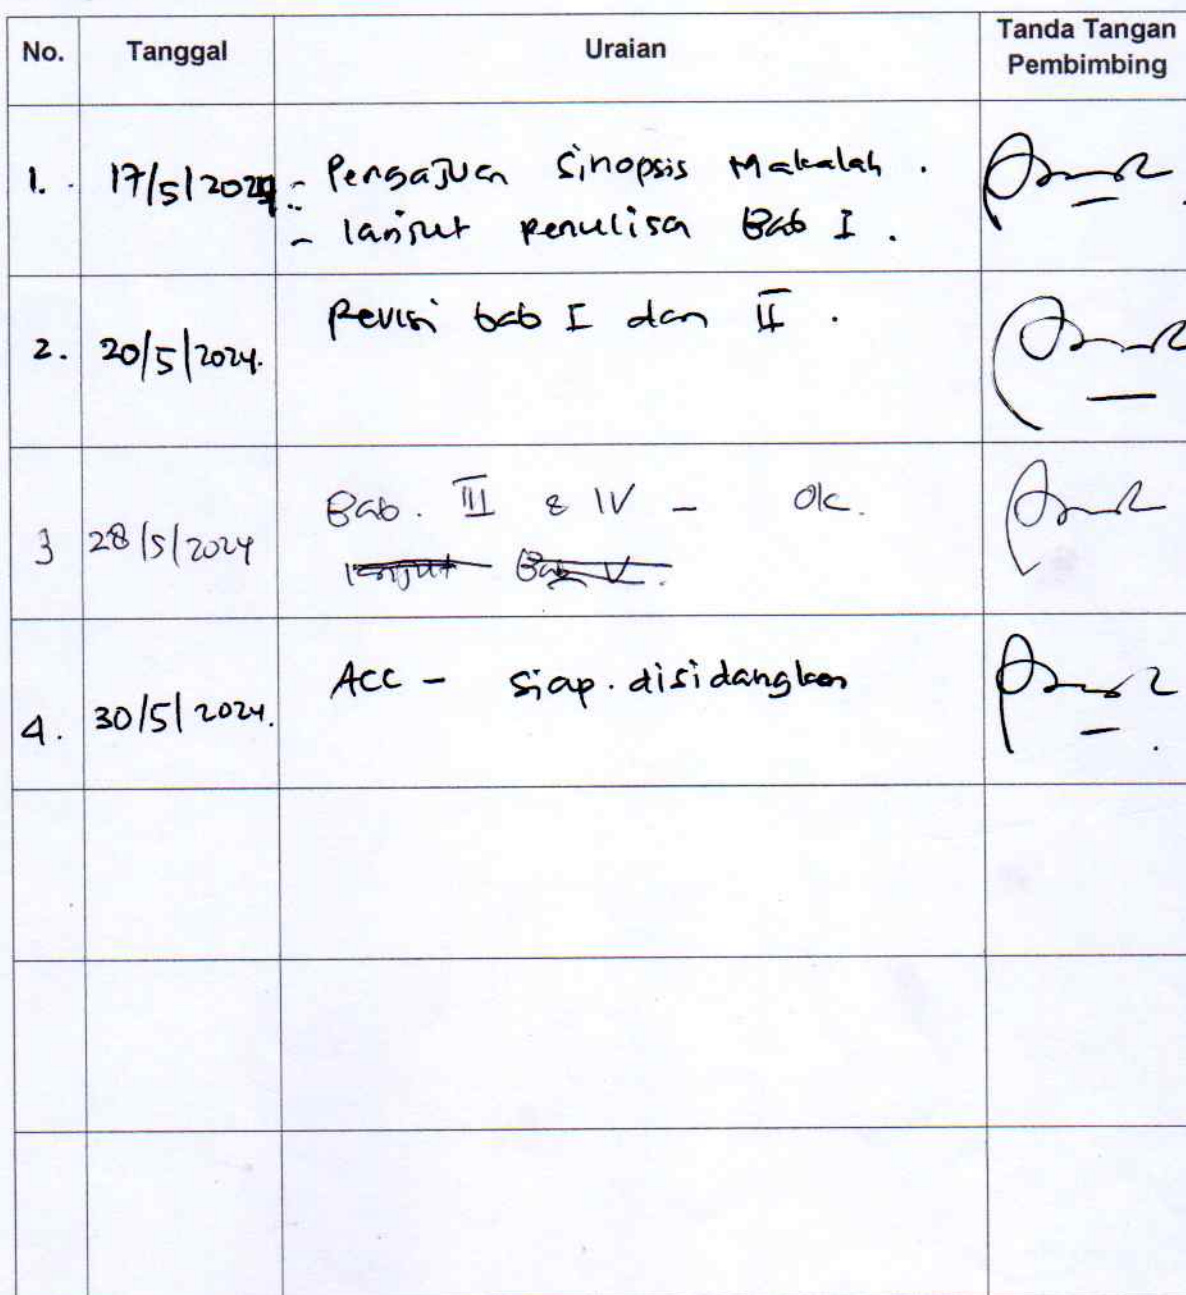 No. Tanggal Uraian Tanda Tangan
Pembimbing
1. 17/5/2024 - Pengajuan Sinopsis Makalah.
- lanjut penulisa Bab I.
2. 20/5/2024. Revisi bab I dan II.
3 28/5/2024 Bab. III & IV - Ok.
lanjut Bab V.
4. 30/5/2024. ACC - Siap. disidangkan